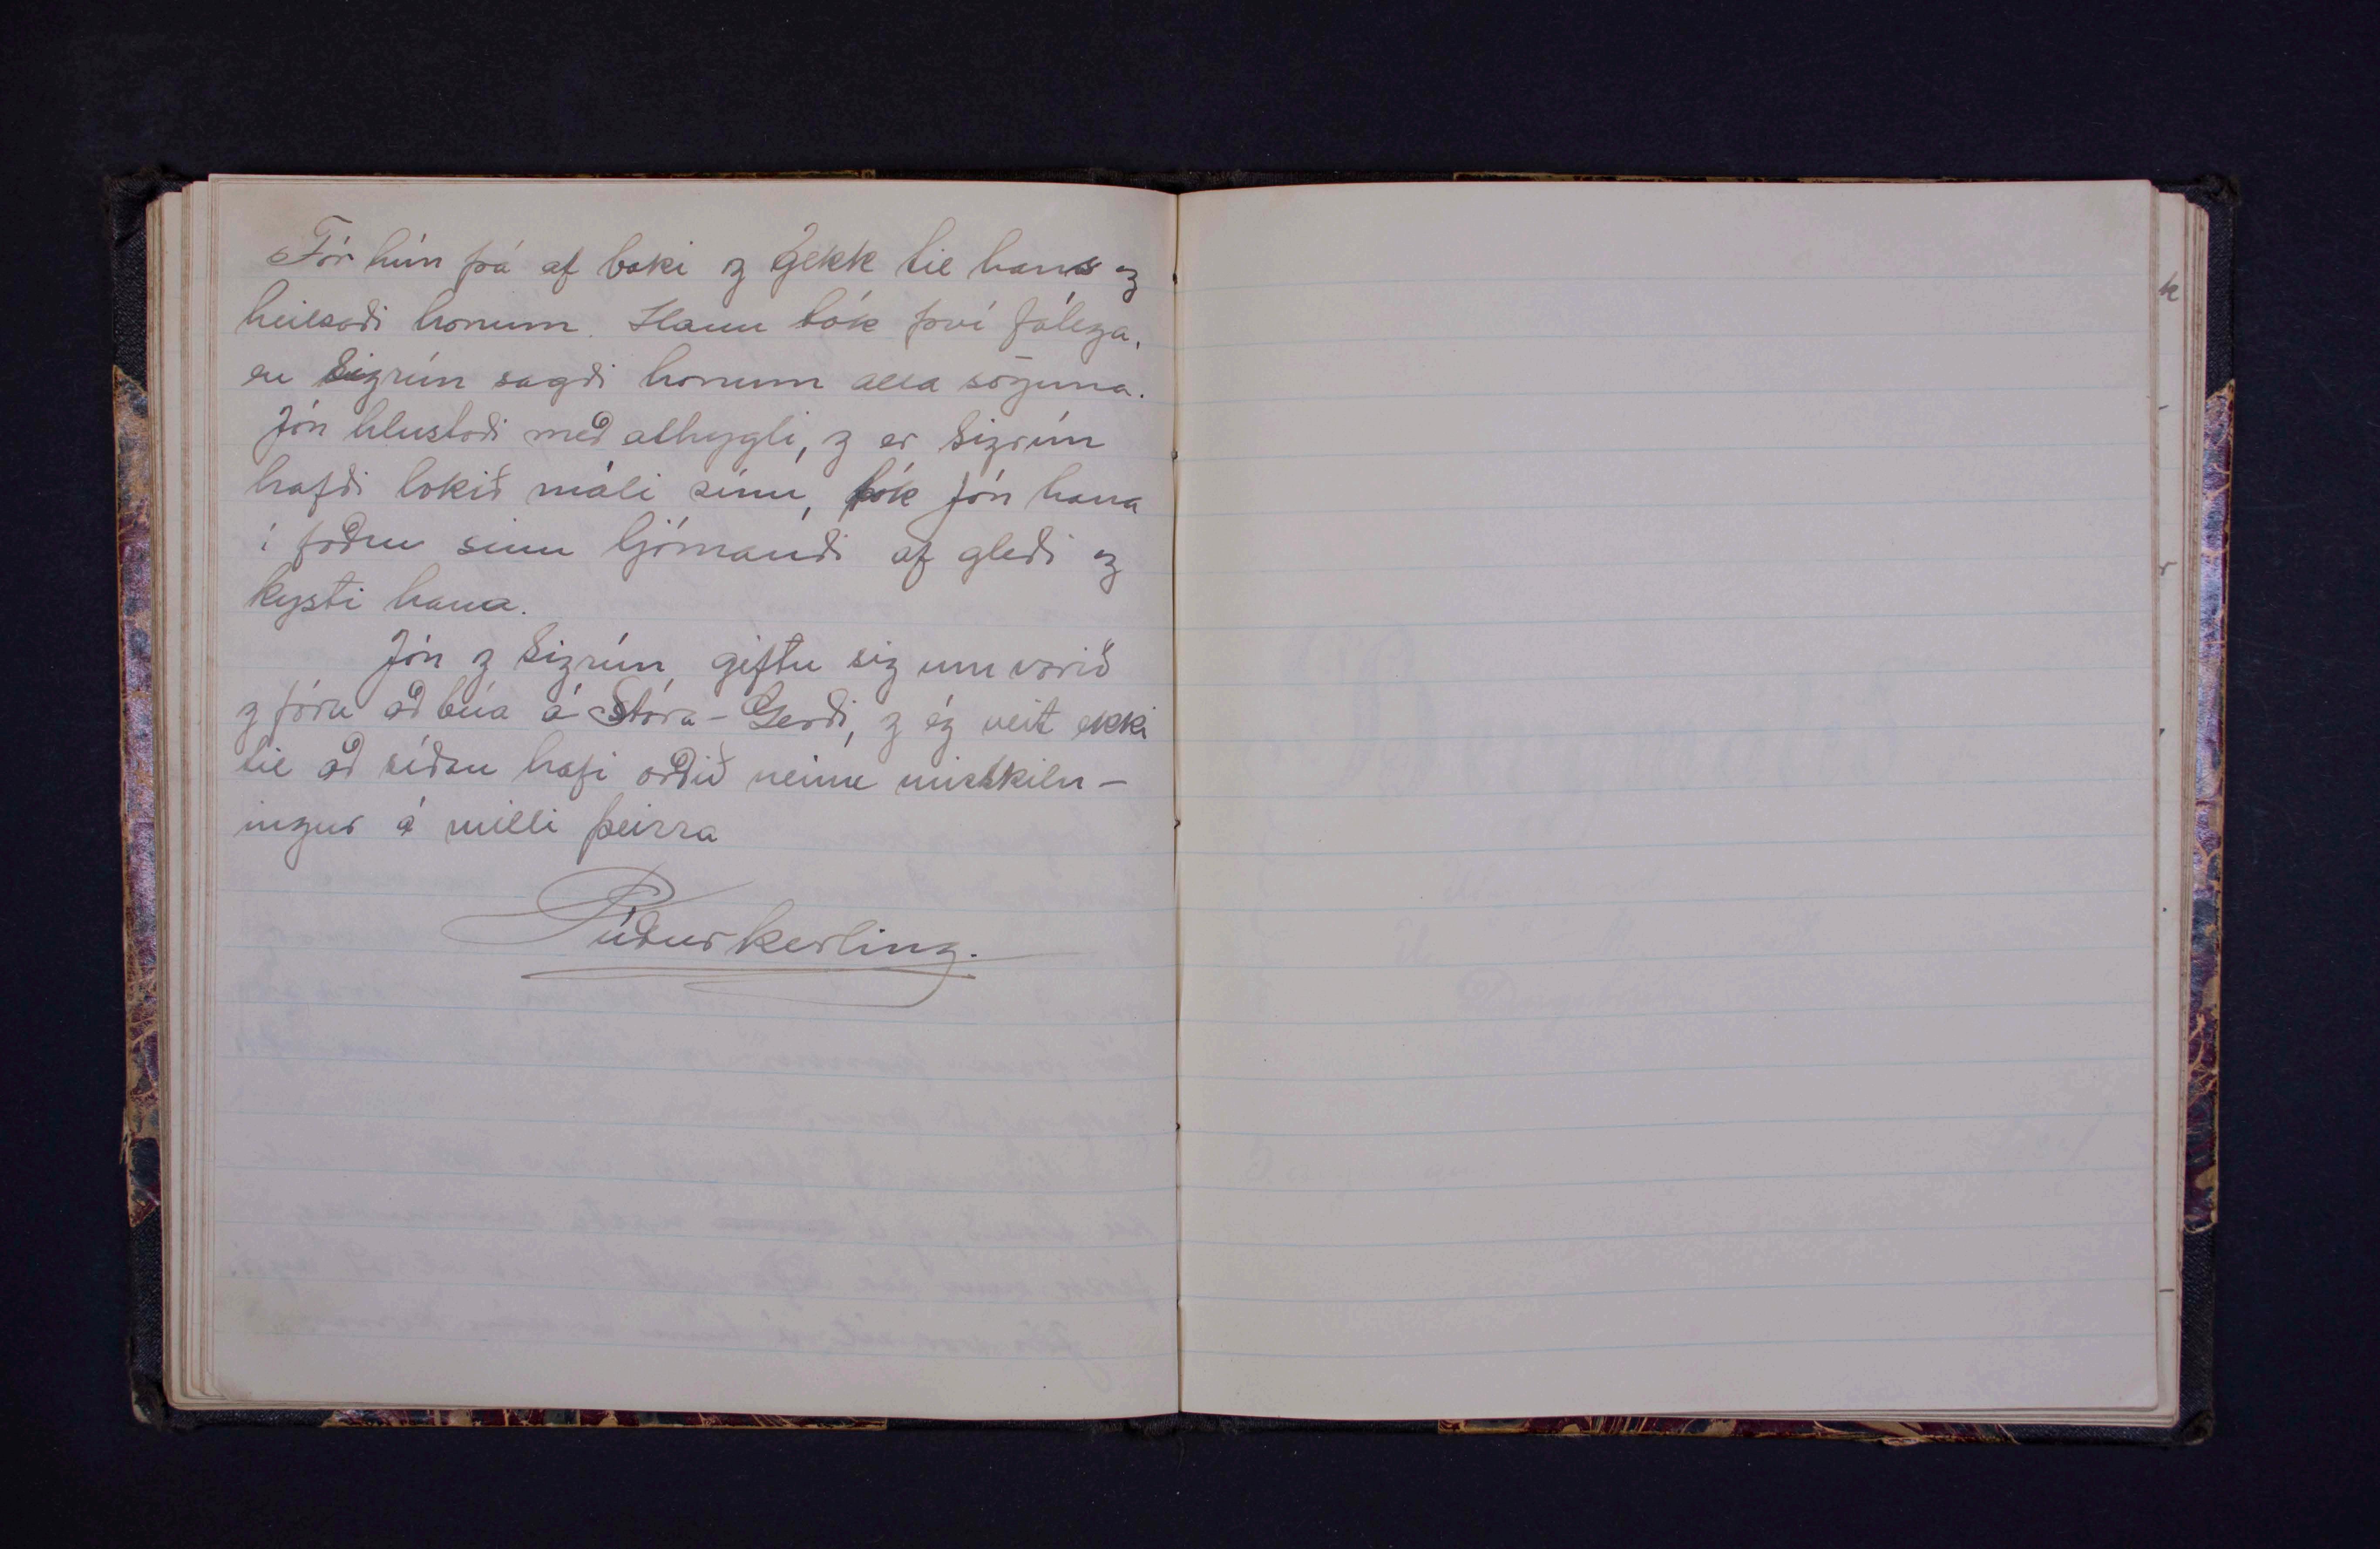 Fór hún þá af baki og gekk til hans og
heilsaði honum. Hann tók því fálega,
en Sigrún sagði honum alla söguna.
Jón hlustaði með athygli, og er Sigrún
hafði lokið máli sínu, tók Jón hana
í faðm sinn ljómandi af gleði og
kysti hana.
Jón og Sigrún, giftu sig um vorið
og fóru að búa á Stóra-Gerði, og ég veit ekki
til að síðan hafi orðið neinn misskiln-
ingur á milli þeirra
Púðurkerling.